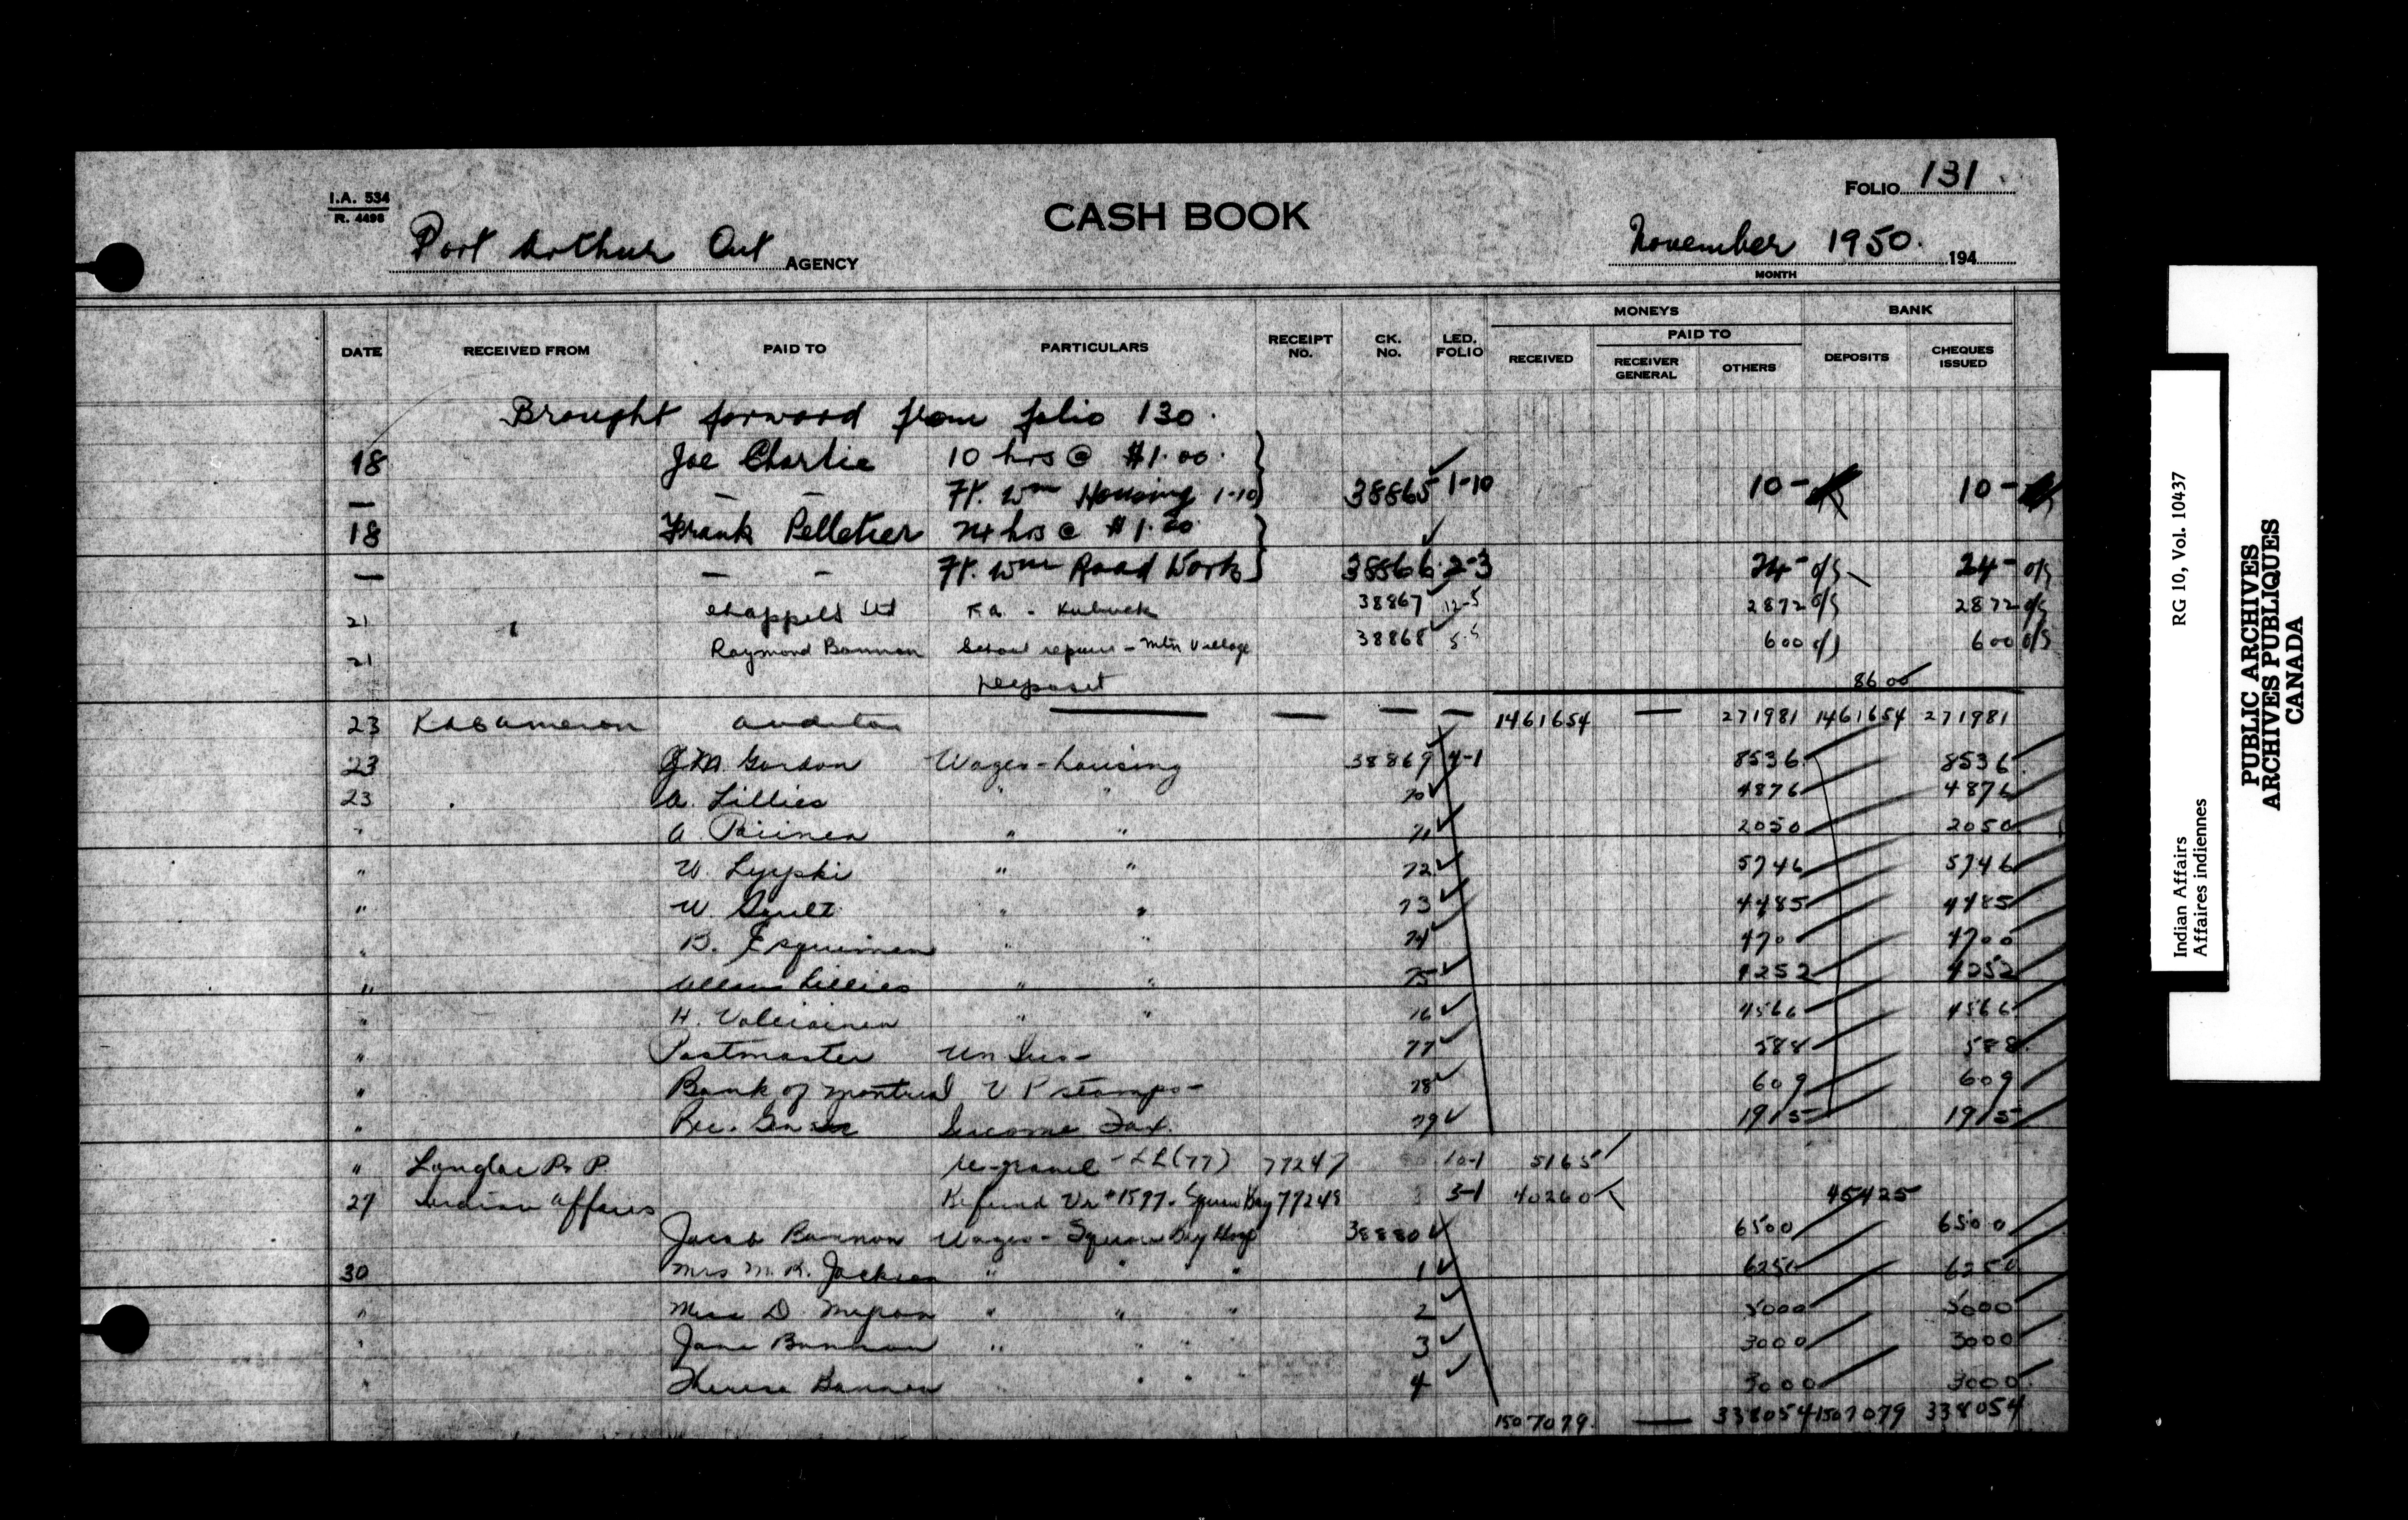 I.A. 534
R. 4496
CASH BOOK
FOLIO 131
Port Arthur Ont AGENCY
November 1950. 194
MONTH
MONEYS BANK
DATE RECEIVED FROM PAID TO PARTICULARS RECEIPT NO. CK. NO. LED. FOLIO RECEIVED PAID TO RECEIVER GENERAL OTHERS DEPOSITS CHEQUES ISSUED
Brought forward from folio 130.
18 Joe Charlie 10 hrs @ $1.00.
— — — Ft. Wm Housing 1-10 38865 1-10 10- 10-
18 Frank Pelletier 24 hrs @ $1.00
— — — Ft. Wm Road Work 38866 2-3 24- o/s 24- o/s
21 Chappels Ltd F.A. - 38867 12-5 2872 o/s 2872 o/s
21 Raymond Bannon School repairs - Mtn Village 38868 5-5 600 o/s 600 o/s
Deposit 8600
23 Auditor — — — — 1461654 — 271981 1461654 271981
23 J.M. Gordon Wages - housing 38869 4-1 8536 8536
23 A. Lillies " " 70 4876 4876
" A. " " 71 2050 2050
" W. " " 72 5746 5746
" W. " " 73 4485 4485
" B. Esquimen " " 74 4700 4700
" Lillies " " 75 4252 4252
" H. " " 76 4566 4566
" Postmaster Un Ins - 77 588 588
" Bank of Montreal V P stamps - 78 609 609
" Rec. Gen Income Tax. 79 1915 1915
" Longlac P. P. - LL (77) 77247 10-1 5165
27 Indian Affairs Refund Vr #1597. Squaw Bay 77248 3-1 40260 45425
Jacob Bannon Wages - Squaw Bay Hosp 38880 6500 6500
30 Mrs M. K. Jackson " " " 1 6250 6250
" Miss D. " " " 2 5000 5000
" Jane Bannon " " " 3 3000 3000
" Theresa Bannon " " 4 3000 3000
1507079. — 338054 1507079 338054
RG 10, Vol. 10437
Indian Affairs
Affaires indiennes
PUBLIC ARCHIVES
ARCHIVES PUBLIQUES
CANADA